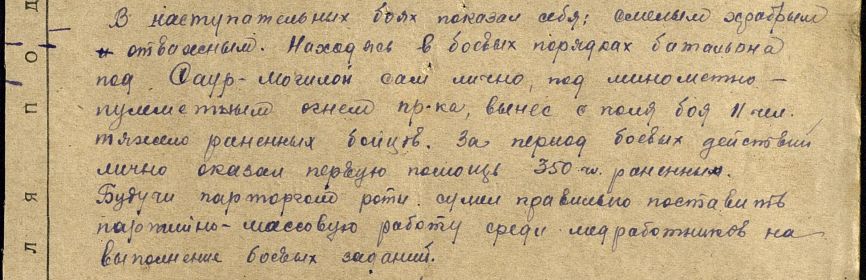 В наступательных боях показал себя; смелым храбрым
и отважным. Находясь в боевых порядках батальона
под Саур-Могилой сам лично, под минометно-
пулеметным огнем пр-ка, вынес с поля боя 11 чел.
тяжело раненных бойцов. За период боевых действий
лично оказал первую помощь 350 раненным.
Будучи парторгом роты сумел правильно поставить
партийно-массовую работу среди медработников на
выполнение боевых заданий.
Д
О
П
Я
Л